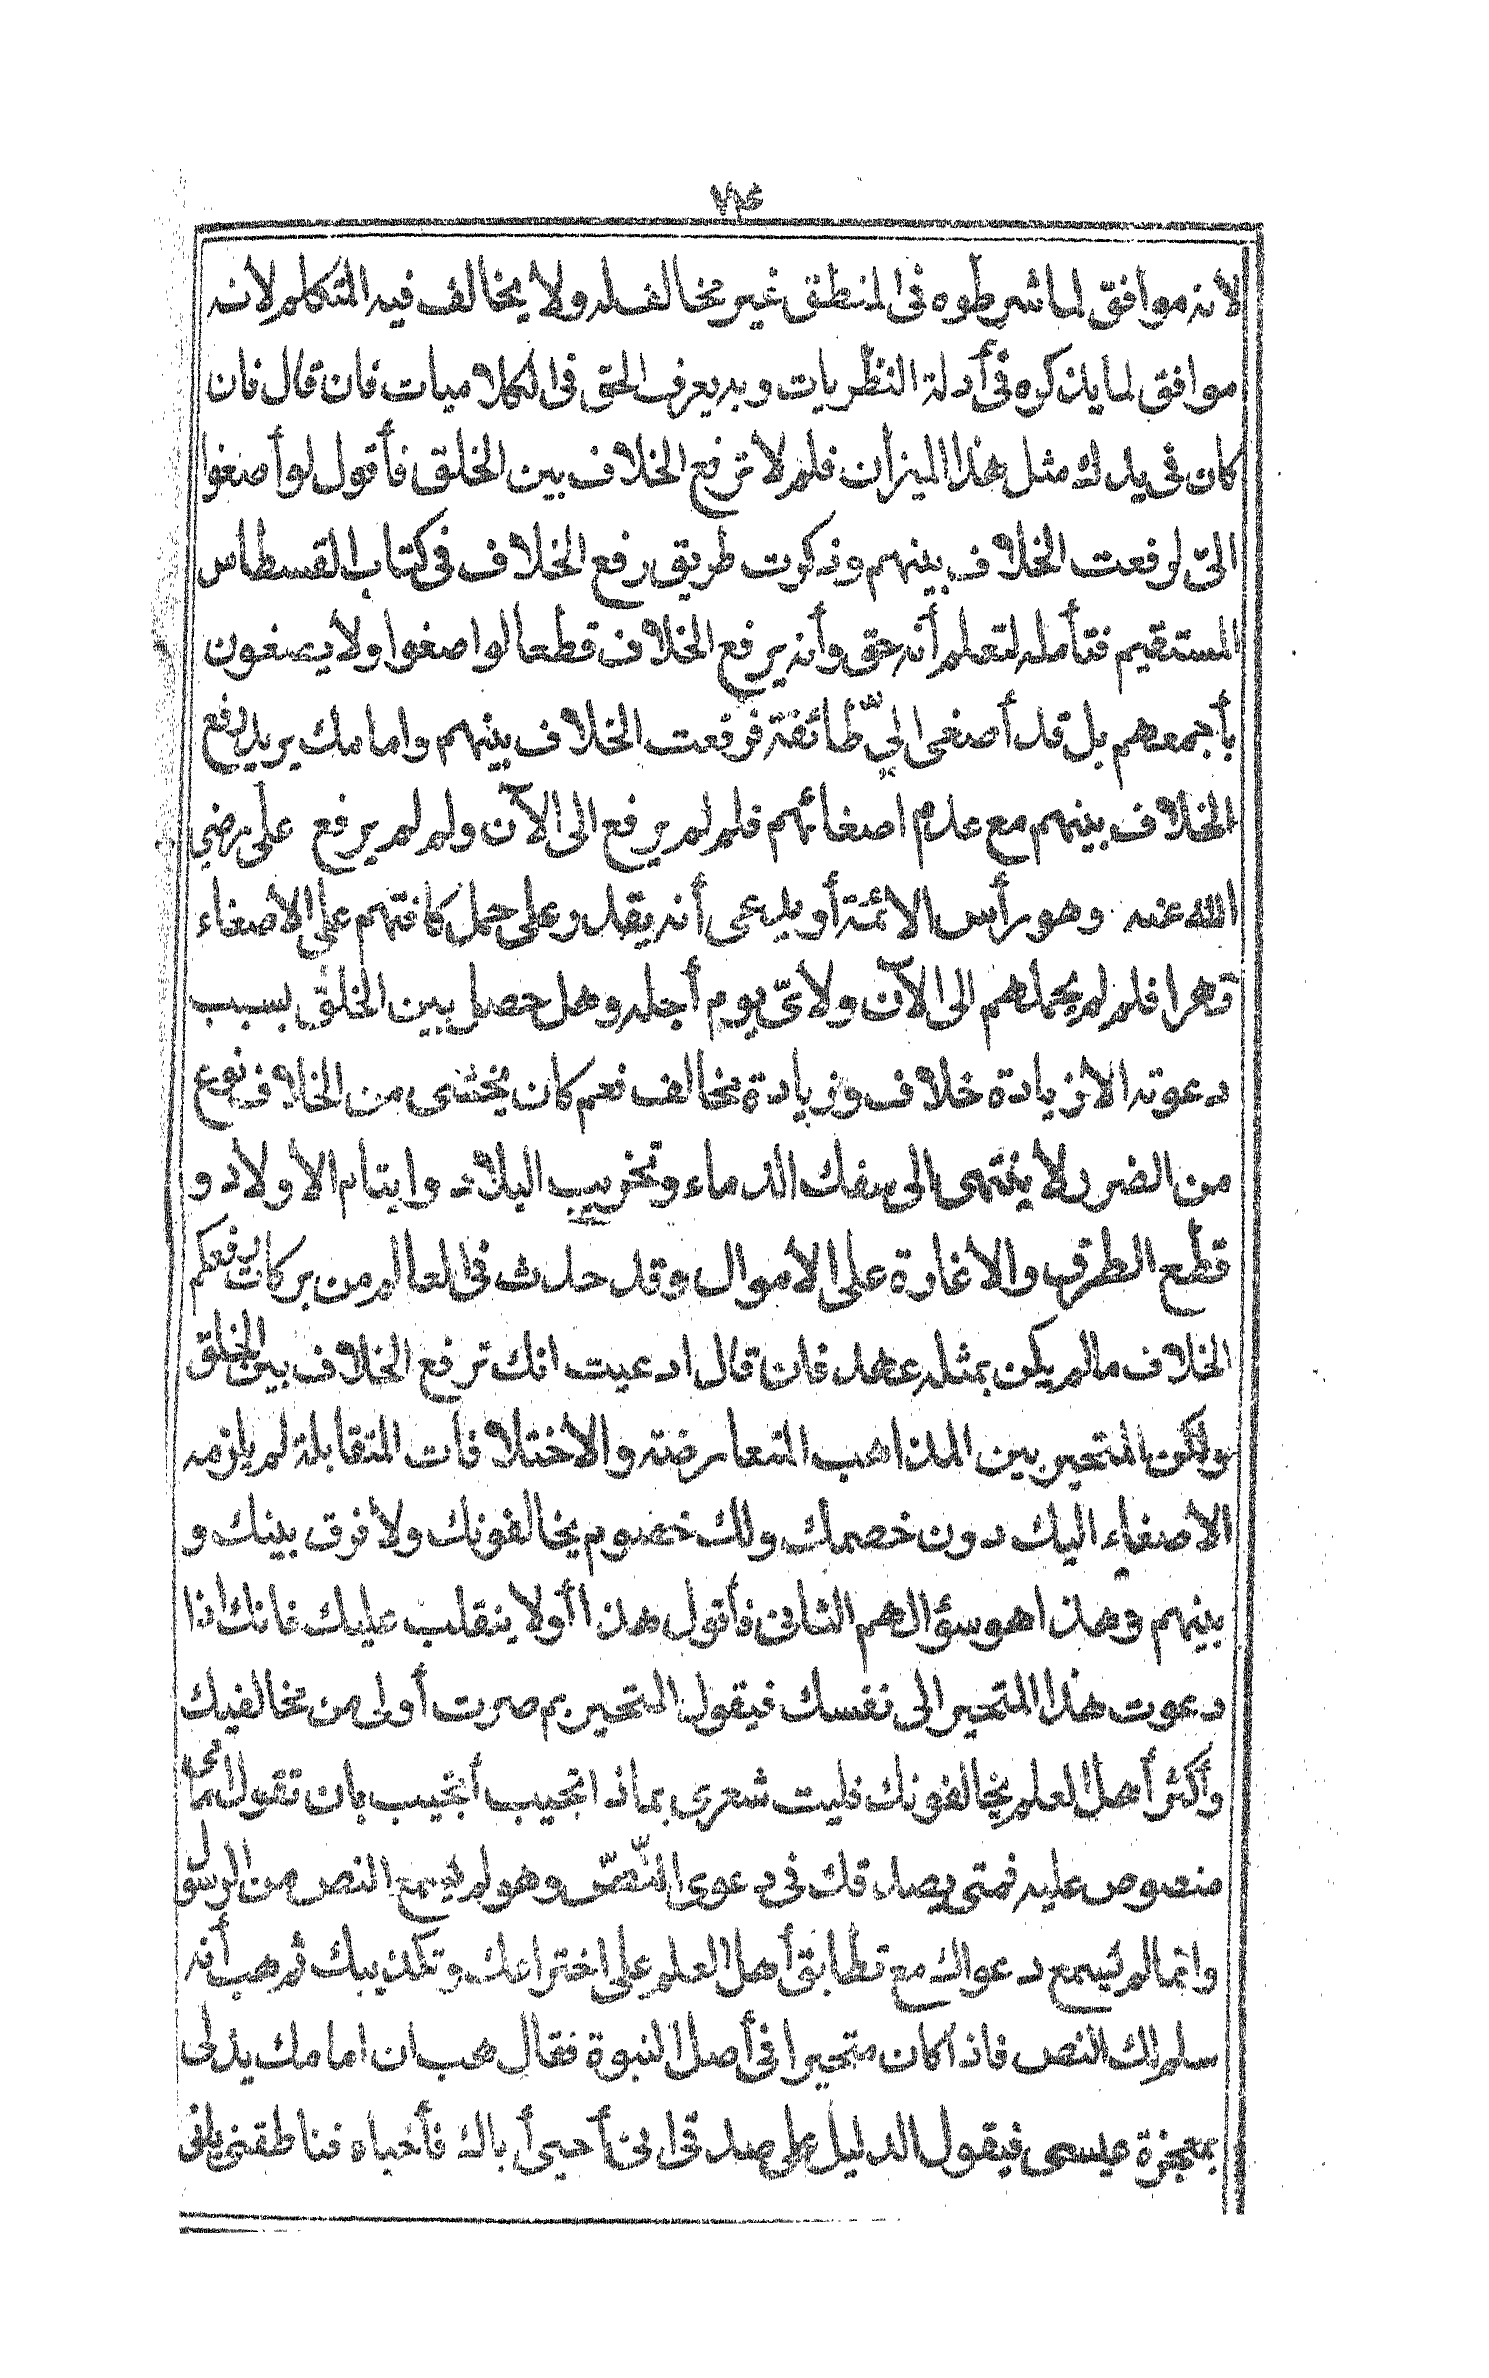 ٧٤
لانه موافق لما شرطوه فى المنطق غير مخالف له ولا يخالف فيه المتكلم لانه
موافق لما يذكره فى أدلة النظريات وبه يعرف الحق فى الكلاميات فان قال فان
كان فى يدك مثل هذا الميزان فلم لا ترفع الخلاف بين الخلق فأقول لو أصغوا
الىّ لرفعت الخلاف بينهم وذكرت طريق رفع الخلاف فى كتاب القسطاس
المستقيم فتأمله لتعلم أنه حق وأنه يرفع الخلاف قطعا لو اصغوا ولا يصغون
بأجمعهم بل قد أصغى الىّ طائفة فرفعت الخلاف بينهم وامامك يريد رفع
الخلاف بينهم مع عدم اصغائهم فلم لم يرفع الى الآن ولم لم يرفع على رضى
الله عنه وهو رأس الائمة أو يدعى أنه يقدر على حمل كافتهم على الاصغاء
قهرا فلم لم يحملهم الى الآن ولأىّ يوم أجله وهل حصل بين الخلق بسبب
دعوته الا زيادة خلاف وزيادة مخالف نعم كان يخشى من الخلاف نوع
من الضرر لا ينتهى الى سفك الدماء وتخريب البلاد وايتام الأولاد و
قطع الطرق والاغارة على الاموال وقد حدث فى العالم من بركات رفعكم
الخلاف ما لم يكن بمثله عهد فان قال ادعيت انك ترفع الخلاف بين الخلق
ولكن المتحير بين المذاهب المتعارضة والاختلافات المتقابلة لم يلزمه
الاصغاء اليك دون خصمك ولك خصوم يخالفونك ولا فرق بينك و
بينهم وهذا هو سؤالهم الثانى فأقول هذا أولا ينقلب عليك فانك اذا
دعوت هذا المتحير الى نفسك فيقول المتحير بم صرت أولى من مخالفيك
وأكثر أهل العلم يخالفونك فليت شعرى بماذا تجيب أتجيب بان تقول امامى
منصوص عليه فمتى يصدقك فى دعوى النصّ وهو لم يسمع النص من الرسول
وانما لم يسمع دعواك مع تطابق أهل العلم على اختراعك وتكذيبك ثم هب أنه
سلم لك النص فاذا كان متحيرا فى أصل النبوة فقال هب ان امامك يدلى
بمعجزة عيسى فيقول الدليل على صدقى انى أحيى أباك فأحياه فناطقنى بانى